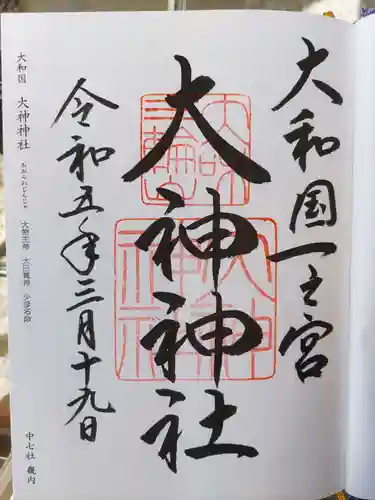 大和国一之宮
大神神社
令和五年三月十九日
大和国 大神神社
おおみわじんじゃ
大物主神 大己貴神 少彦名神
中七社 畿内